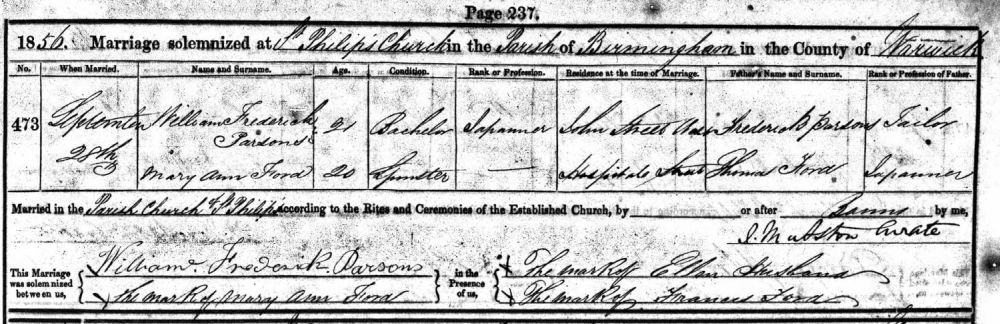 Page 237.
1856. Marriage solemnized at St. Philip's Church in the Parish of Birmingham in the County of Warwick
No. When Married. Name and Surname. Age. Condition. Rank or Profession. Residence at the time of Marriage. Father's Name and Surname. Rank or Profession of Father.
473 September 28th William Frederick Parsons 21 Bachelor Japanner John Street Frederick Parsons Tailor
Mary Ann Ford 20 Spinster Hospital Street Thomas Ford Japanner
Married in the Parish Church of St. Philip's according to the Rites and Ceremonies of the Established Church, by or after Banns by me,
Curate
This Marriage was solemnized between us, William Frederick Parsons in the Presence of us, X The mark of Ellen Husband
X The mark of Mary Ann Ford X The mark of Francis Ford